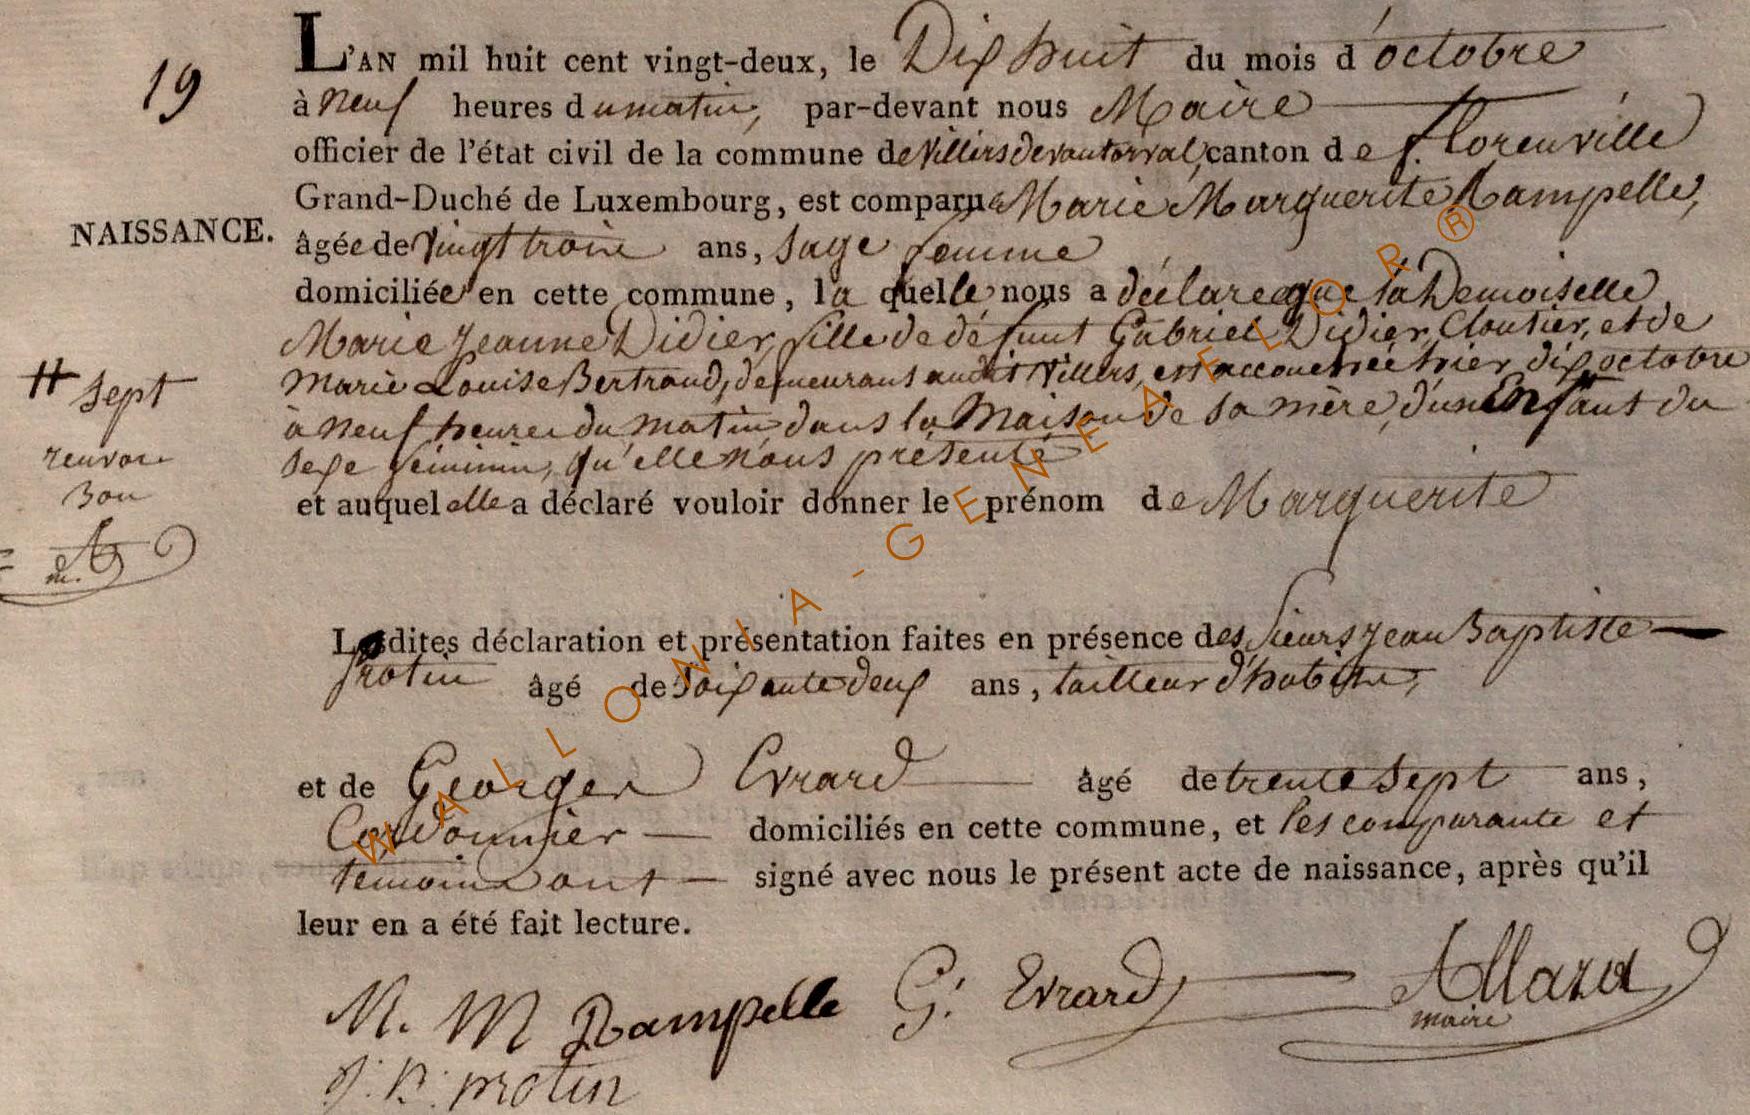 19
L'AN mil huit cent vingt-deux, le Dix huit du mois d'octobre
à neuf heures du matin, par-devant nous Maire
officier de l'état civil de la commune de Villers devant orval, canton de florenville
Grand-Duché de Luxembourg, est comparue Marie Marguerite Rampelle,
NAISSANCE.
âgée de vingt trois ans, sage femme
domiciliée en cette commune, la quelle nous a déclaré que la Demoiselle
Marie Jeanne Didier, fille de défunt Gabriel Didier, Cloutier, et de
Marie Louise Bertrand, demeurant audit Villers, est accouchée hier dix octobre
# sept
à neuf heures du matin dans la Maison de sa mère, d'un Enfant du
renvoi
sexe féminin, qu'elle nous présente
Bon
et auquel elle a déclaré vouloir donner le prénom de Marguerite
m.
Lesdites déclaration et présentation faites en présence des Sieurs Jean Baptiste
protin âgé de Soixante deux ans, tailleur d'habits,
et de Georges Evrard âgé de trente sept ans,
Cordonnier domiciliés en cette commune, et les comparante et
temoins ont signé avec nous le présent acte de naissance, après qu'il
leur en a été fait lecture.
M. M Rampelle G. Evrard Allard
maire
J. B. protin
WALLONIA-GENEAFLOR ®